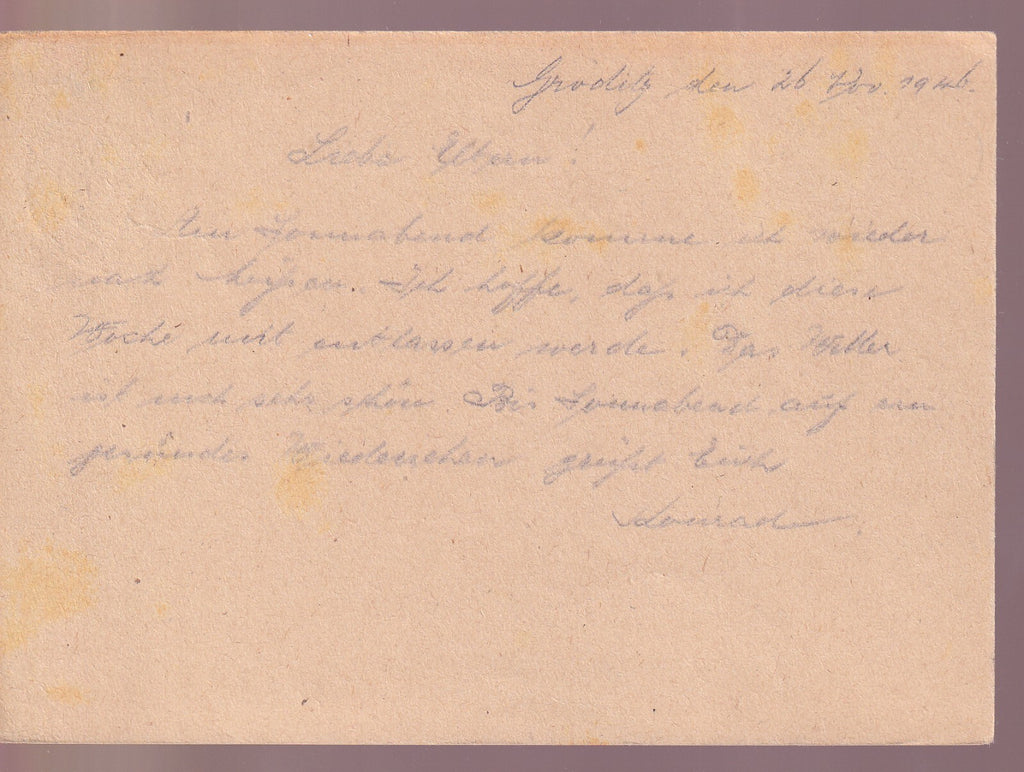 Gröditz den 26 Nov. 1946.
Liebe Eltern!
Am Sonnabend komme ich wieder
nach Meißen. Ich hoffe, daß ich diese
Woche mit entlassen werde. Das Wetter
ist noch sehr schön. Bis Sonnabend auf ein
gesundes Wiedersehen grüßt Euch
Konrad.